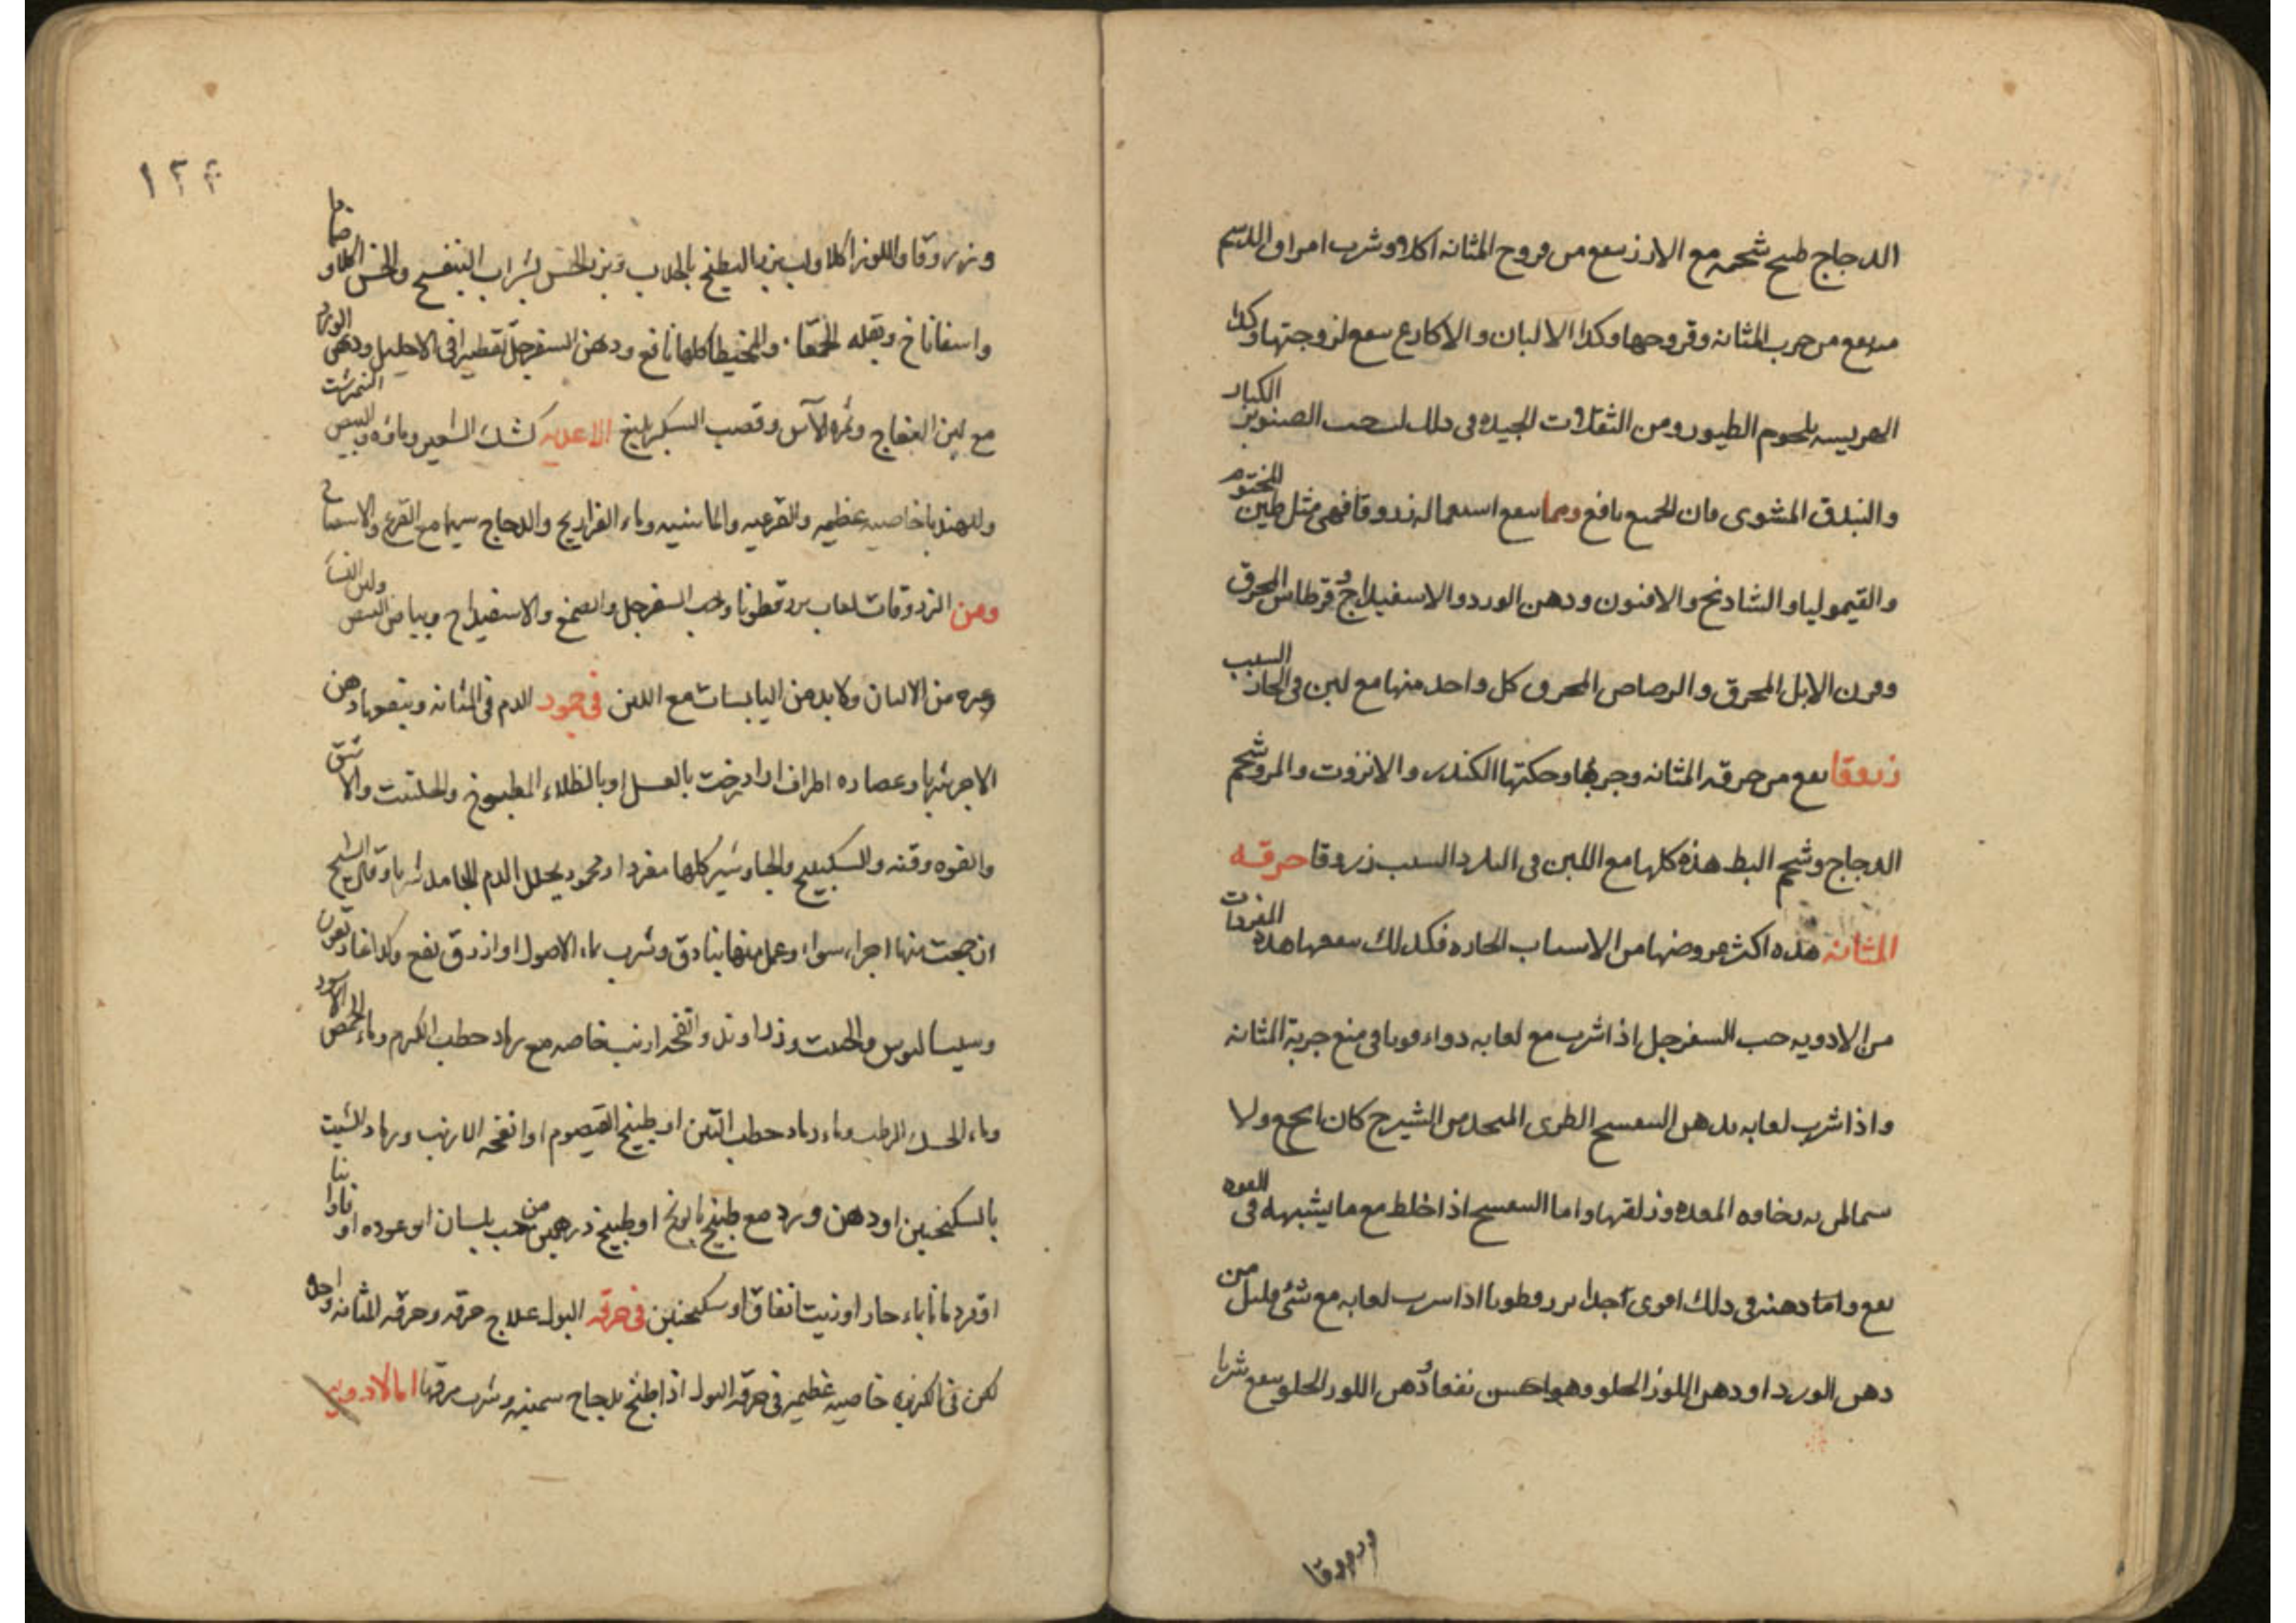 الدجاج طبخ شحمه مع الارز ينفع من قروح المثانه اكلا وشرب امراق الدسم
ينفع من جرب المثانه وقروحها وكذا الالبان والاكارع ينفع لزوجتها وكذا
الهريسه بلحوم الطيور ومن التنقلات الجيده فى ذلك لب حب الصنوبر الكبار
والبندق المشوى فان الجميع نافع ومما ينفع استعماله زروقا فهى مثل طين المختوم
والقيموليا والشادنج والافيون ودهن الورد والاسفيداج وقرطاس المحرق
وقرن الابل المحرق والرصاص المحرق كل واحد منها مع لبن فى الحار السبب
زروقا ينفع من حرقه المثانه وجربها وحكتها الكندر والانزروت والمر وشحم
الدجاج وشحم البط هذه كلها مع اللبن فى البارد السبب زروقا حرقه
المثانه هذه اكثر عروضها من الاسباب الحاره فكذلك ينفعها هذه المفردات
من الادويه حب السفرجل اذا شرب مع لعابه دواء قويا فى منع جربة المثانه
واذا شرب لعابه بدهن البنفسج الطرى المتخذ من الشيرج كان انجع ولا
سيما لمن به رخاوه المعده وزلقها واما البنفسج اذا خلط مع ما يشبهه فى القوه
نفع واما دهنه فى ذلك اقوى جدا بزر قطونا اذا شرب لعابه مع شئ قليل من
دهن الورد او دهن اللوز الحلو وهو احسن نفعا ودهن اللوز الحلو ينفع شربا
وزروقا
١٢٤
وزروقا واللوز اكلا ولب بزر البطيخ بالجلاب وبزر الخس بشراب البنفسج والخس اكلا وضمادا
واسفاناخ وبقله الحمقا والمخيطا كلها نافع ودهن السفرجل تقطيرا فى الاحليل ودهن الورد
مع لبن النعاج وثمره الآس وقصب السكر بليغ الاغذيه كشك الشعير وماؤه والبيض النيمرشت
وللهندبا خاصيه عظيمه والقرعيه والماشيه وماء الفراريج والدجاج سيما مع القرع والاسفاناخ
ومن الزروقات لعاب بزر قطونا وحب السفرجل والصمغ والاسفيداج وبياض البيض ولبن النساء
وغيره من الالبان ولا بد من اليابسات مع اللبن فى جمود الدم فى المثانه وينفعها دهن
الاجر شربا وعصاره اطراف ازادرخت بالعسل او بالطلاء المطبوخ والحلتيت والاشق
والفوه وقنه والسكبينج والجاوشير كلها مفردا ومجموعه يحلل الدم الجامد شربا وقال الشيخ
ان جمعت منها اجزاء سواء وعمل منها بنادق وشرب بماء الاصول او ازرق نفع وكذا غاريقون
وسيساليوس والحلتيت وزراوند وانفحه ارنب خاصه مع رماد حطب الكرم وماء الحمص الاسود
وماء الخل الرطب وماء رماد حطب التين او طبيخ القيصوم او انفحه الارنب ورماد الشبت
بالسكنجبين او دهن ورد مع طبيخ بابونج او طبيخ درهمين من حب بلسان او عوده او نانا
او قردمانا بماء حار او زيت انفاق او سكنجبين فى حرقه البول علاج حرقه وحرقه المثانه واحد
لكن فى الكزبره خاصيه عظيمه فى حرقه البول اذا طبخ بدجاج سمينه وشرب مرقها اما الادويه